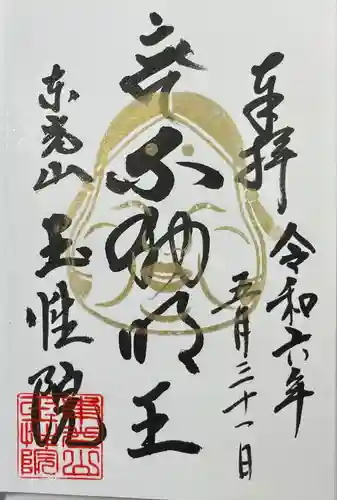 奉拝
令和六年
五月三十一日
不動明王
東光山
玉性院